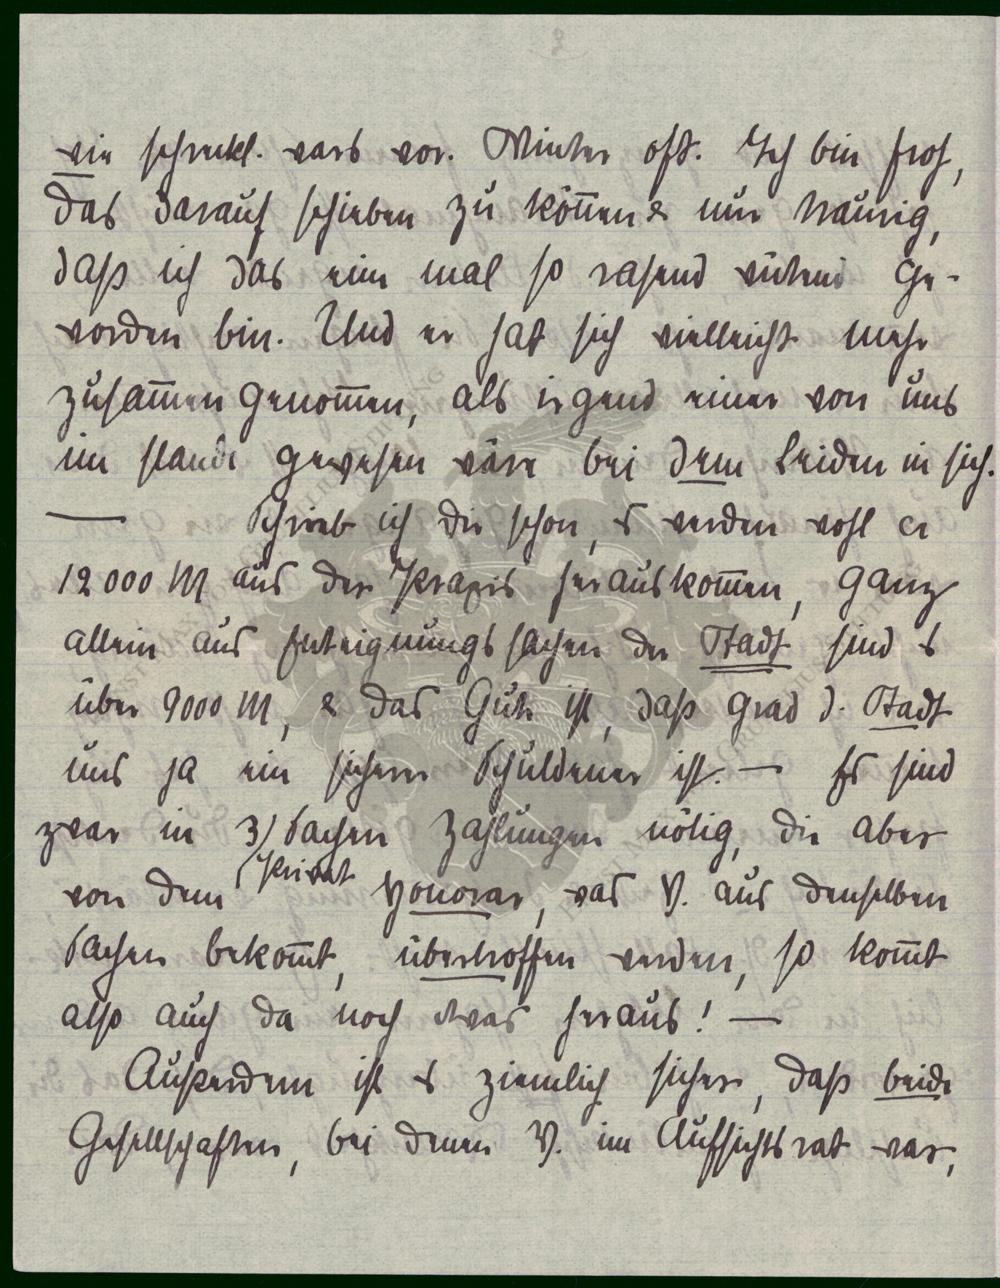 wie schreckl. wars vor. Winter oft. Ich bin froh,
das darauf schieben zu können & nur traurig,
daß ich das eine mal so rasend wütend ge-
worden bin. Und er hat sich vielleicht mehr
zusammen genommen, als irgend einer von uns
im stande gewesen wäre bei dem Leiden in sich.
— Schrieb ich Dir schon, es werden wohl ca
12 000 M aus der Praxis herauskommen, ganz
allein aus Enteignungssachen der Stadt sind es
über 9000 M, & das Gute ist, daß grad d. Stadt
uns ja ein sicherer Schuldener ist. — Es sind
zwar in 3) Sachen Zahlungen nötig, die aber
von dem (Privat Honorar, was V. aus denselben
Sachen bekommt, übertroffen werden, so kommt
also auch da noch etwas heraus! —
Außerdem ist es ziemlich sicher, daß beide
Gesellschaften, bei denen V. im Aufsichtsrat war,